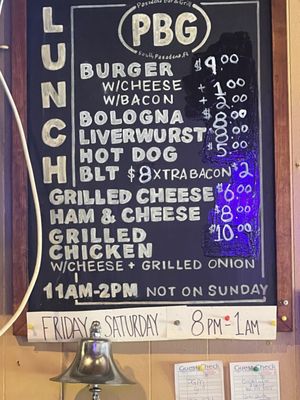 Pasadena Bar & Grill
PBG
South Pasadena, FL
LUNCH
BURGER $9.00
W/CHEESE +
W/BACON +
BOLOGNA
LIVERWURST
HOT DOG
BLT $8 XTRA BACON $2
GRILLED CHEESE $6.00
HAM & CHEESE $8.00
GRILLED $10.00
CHICKEN
W/CHEESE + GRILLED ONION
11AM-2PM NOT ON SUNDAY
FRIDAY & SATURDAY 8PM-1AM
Guest Check
Guest Check